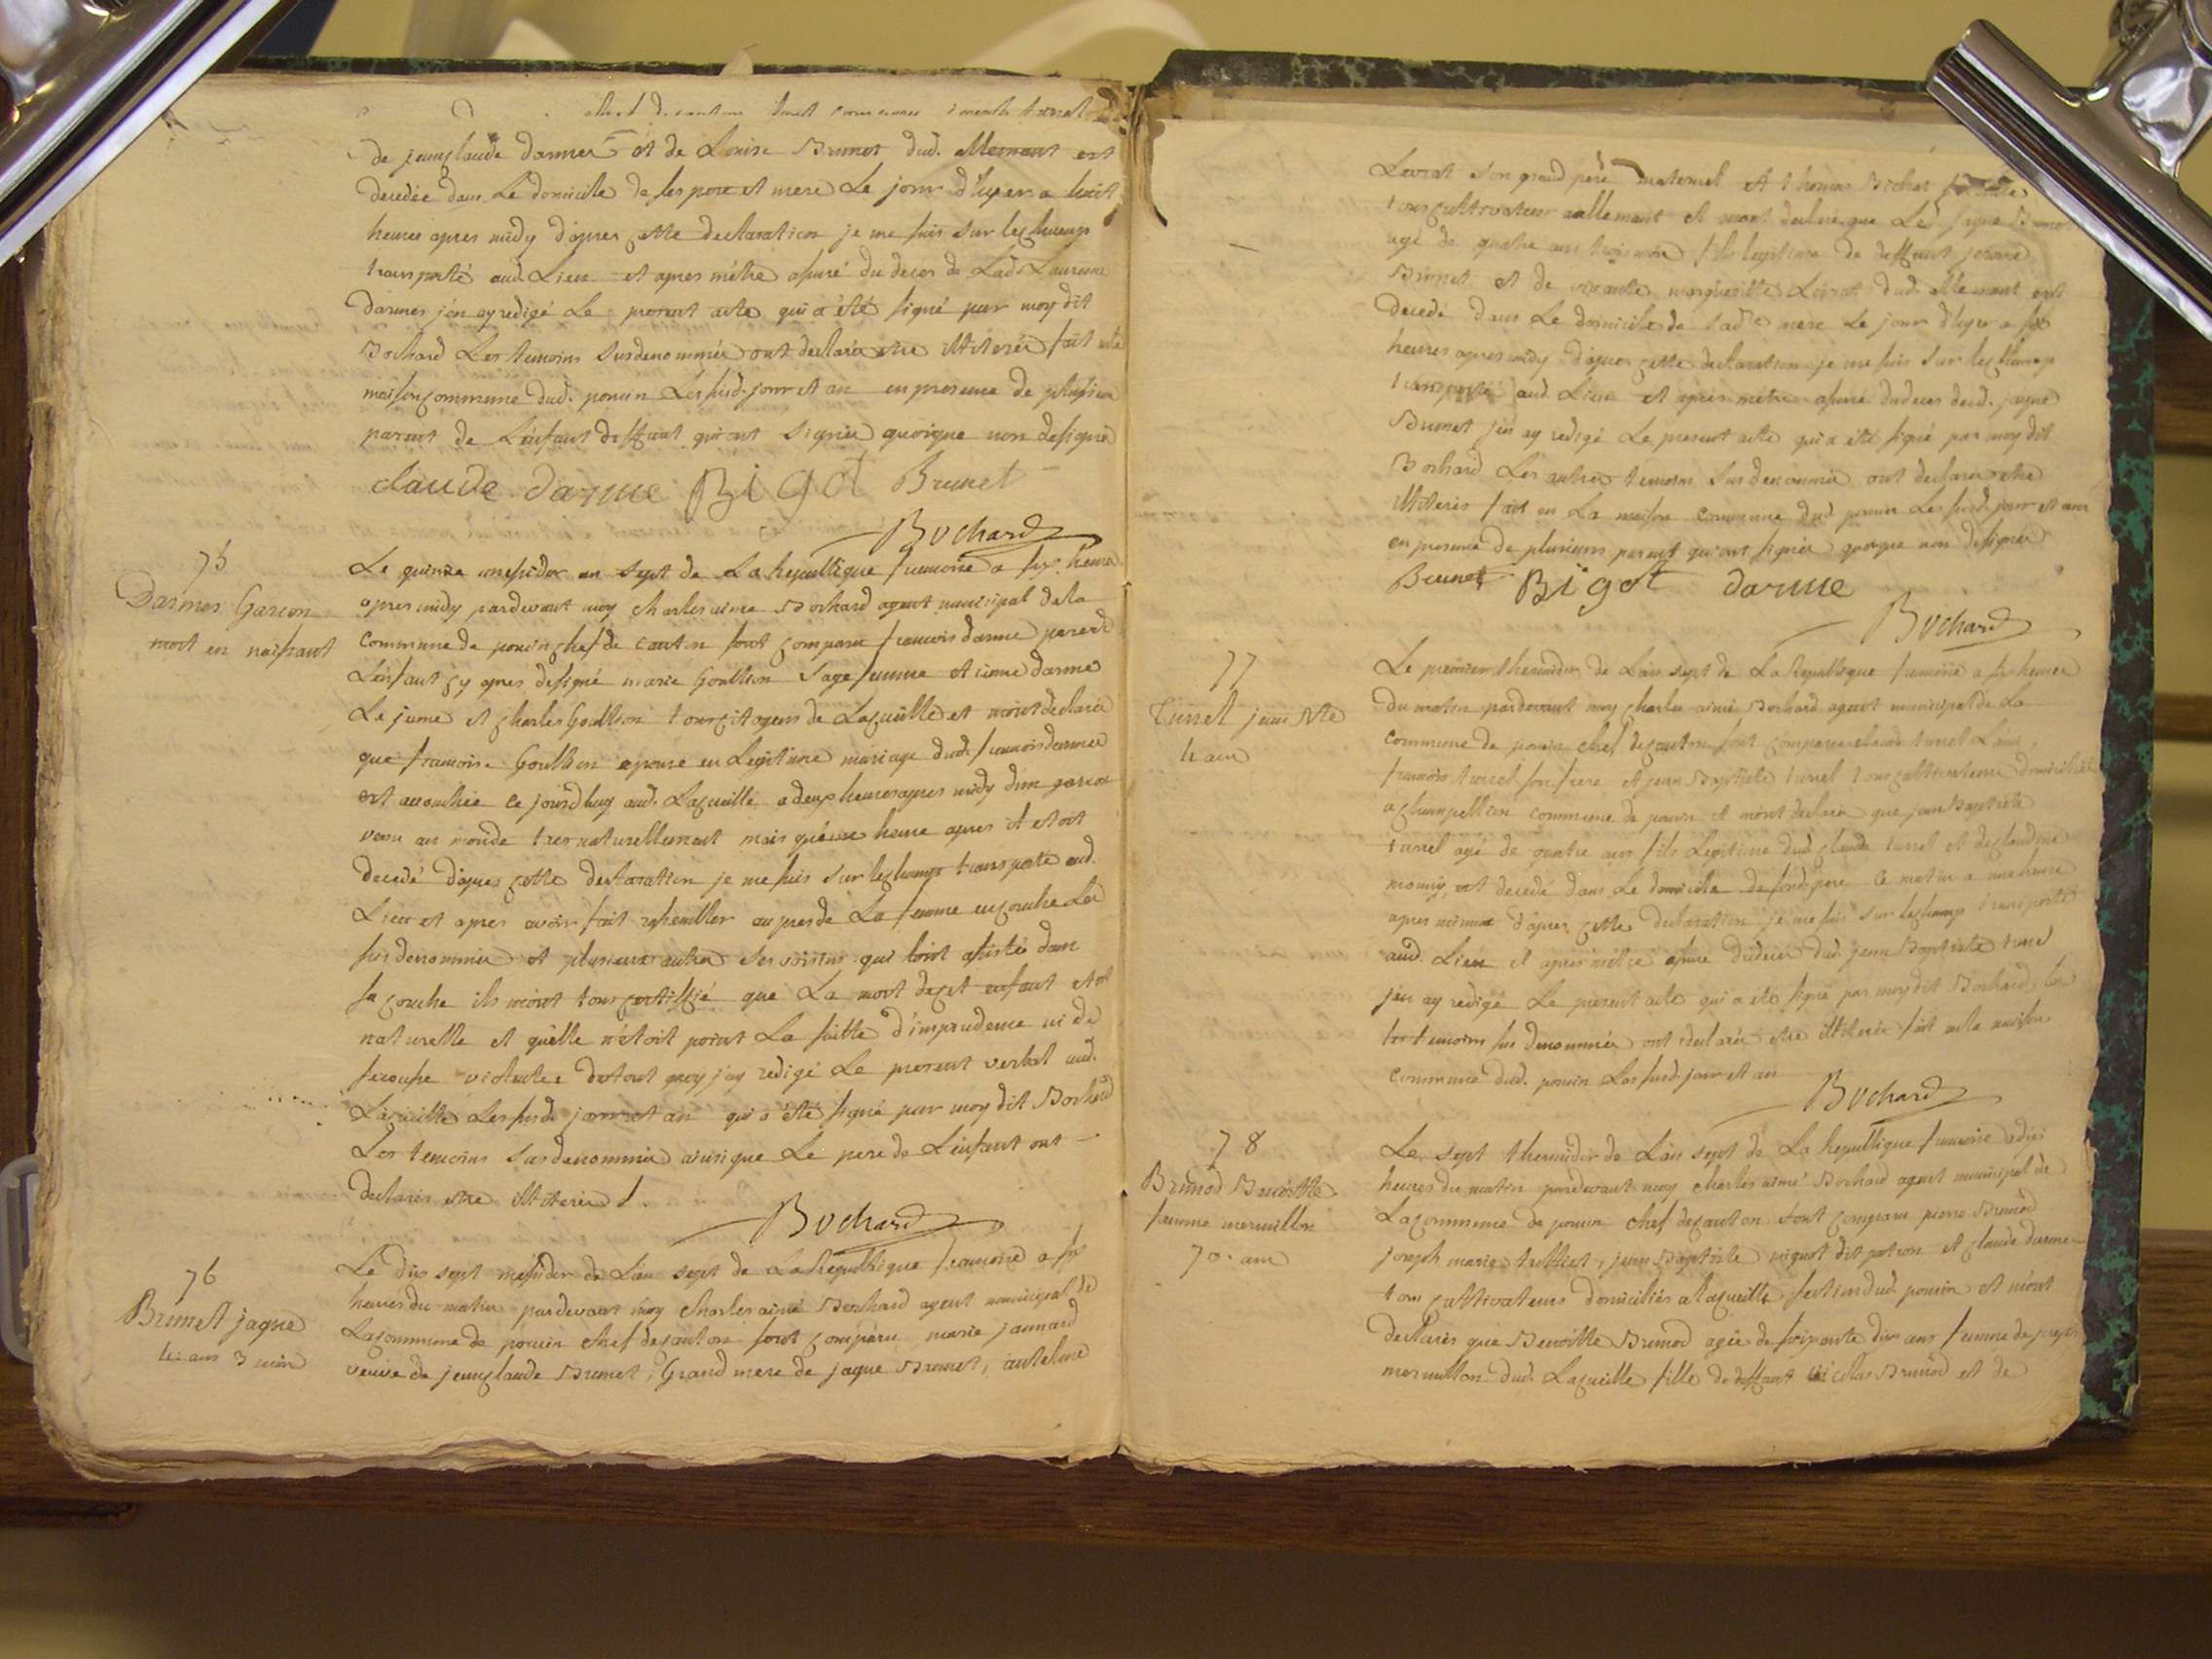 de jeanclaude darmes et de Louise Brunet dud. allement est
decedée dans Le domicile de ses pere et mere Le jour d'hyer a huit
heures apres midy d'apres cette declaration je me suis sur lechamp
transporté aud. Lieu et apres m'étre assuré du deces de Lad. Laurence
Darmes j'en ay redigé Le present acte qui a été signé par moy dit
Bochard Les temoins susdenommés ont declarés etre illiterés fait en la
maison commune dud. poncin Les susd. jour et an en presence de plusieurs
parent de L'enfant deffunt qui ont signés quoique non designés
claude darme Bigot Brunet
Bochard
75
Darmes Garcon
mort en naissant
Le quinze messidor an sept de La Republique francoise a six heures
apres midy pardevant moy charles aimé Bochard agent municipal de la
commune de poncin chef de canton sont comparu francois darme pere de
L'enfant cy apres designé marie Goullion sage femme etienne darme
Le jeune et charles Goullion tous citoyens de Lacueille et m'ont declarés
que francoise Goullion epouse en Legitime mariage dud. francois darmes
est accouchée ce jourdhuy aud. Lacueille a deux heures apres midy d'un garcon
venu au monde tres naturellement mais qu'une heure apres il etoit
decedé d'apres cette declaration je me suis sur lechamp transporté aud.
Lieu et apres avoir fait rassembler aupres de La femme en couche Les
susdenommés et plusieurs autres ses voisins qui l'ont assisté dans
sa couche ils m'ont tous certiffié que La mort de cet enfant etoit
naturelle et qu'elle n'étoit point La suitte d'imprudence ni de
secousse violentes detout quoy j'ay redigé Le present verbal aud.
Lacueille Les susd. jour et an qui a été signé par moy dit Bochard
Les temoins susdenommés ainsi que Le pere de L'enfant ont
declarés etre illiterés
Bochard
76
Brunet jaque
4 ans 3 mois
Le dix sept messidor de L'an sept de La Republique francoise a six
heures du matin pardevant moy charles aimé Bochard agent municipal de
La commune de poncin chef de canton sont comparu marie jannard
veuve de jeanclaude Brunet, Grand mere de jaque Brunet, antelme
Levrat son grand pere maternel et thomas Bochet
tous cultivateur a allement et m'ont declaré que Led. jaque Brunet
agé de quatre ans trois mois fils legitime de deffunt jerome
Brunet et de vivante margueritte Levrat dud. allement est
decedé dans Le domicile de sade mere Le jour d'hyer a six
heures apres midy d'apres cette declaration je me suis sur lechamp
transporté aud. Lieu et apres m'étre assuré du deces dud. jaque
Brunet j'en ay redigé Le present acte qui a été signé par moy dit
Bochard Les autres temoins susdenommés ont declarés etre
illiterés fait en La maison commune dud. poncin Les susd. jour et an
en presence de plusieurs parent qui ont signés quoique non designés
Brunet Bigot darme
Bochard
77
Turrel jean Bte
4 ans
Le premier thermidor de L'an sept de La Republique francoise a six heures
du matin pardevant moy charles aimé Bochard agent municipal de La
commune de poncin chef de canton sont comparu claude turrel L'ainé,
francois turrel son frere et jean Baptiste turrel tous cultivateurs domiciliés
a champeillon commune de poncin et m'ont declarés que jean Baptiste
turrel agé de quatre ans fils Legitime dud. claude turrel et de claudine
est decedé dans Le domicile de sond. pere ce matin a une heure
apres minuit d'apres cette declaration je me suis sur lechamp transporté
aud. Lieu et apres m'étre assuré du deces dud. jean Baptiste turrel
j'en ay redigé Le present acte qui a été signé par moy dit Bochard, les
temoins susdenommés ont declarés etre illiterés fait en la maison
commune dud. poncin Les susd. jour et an
Bochard
78
Brunod Benoitte
femme mermillon
70. ans
Le sept thermidor de L'an sept de La Republique francoise a dix
heures du matin pardevant moy charles aimé Bochard agent municipal de
La commune de poncin chef de canton sont comparu pierre Brunod
joseph marie trelliet, jean Baptiste niquot dit patron et claude darme
tous cultivateurs domiciliés a Lacueille section dud. poncin et m'ont
declarés que Benoitte Brunod agée de soixante dix ans femme de joseph
mermillon dud. Lacueille fille de deffunt nicolas Brunod et de